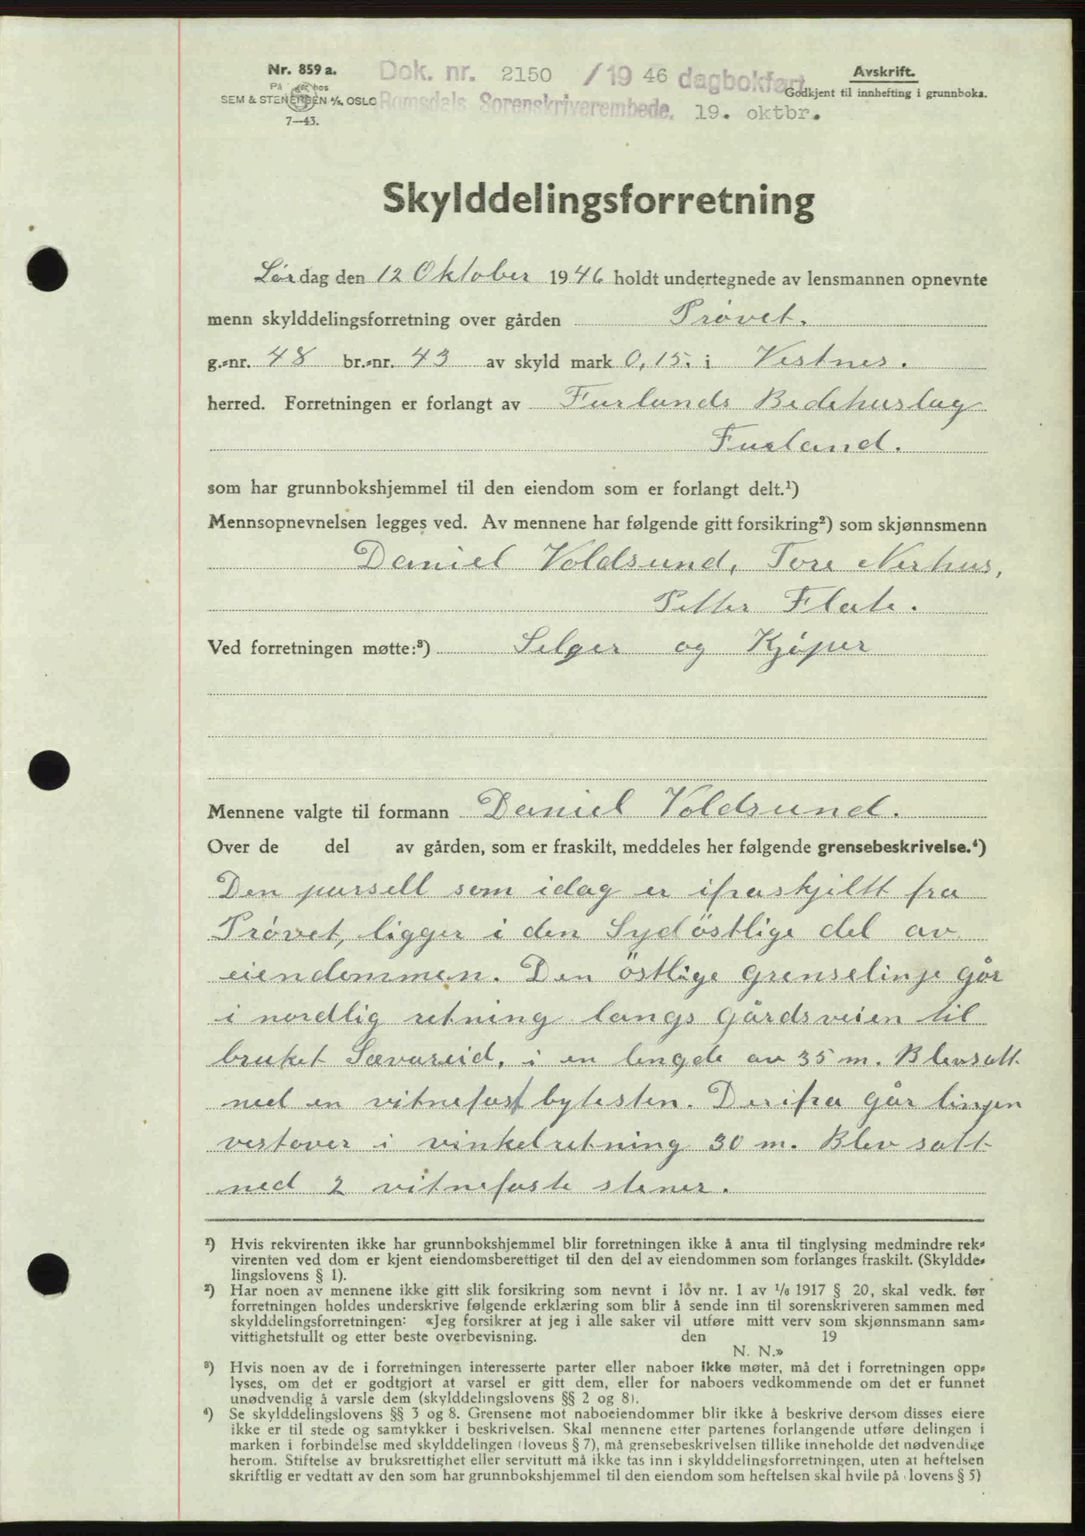 Nr. 859 a. Dok. nr. 2150 /1946 dagbokført Avskrift.
På hos Godkjent til innhefting i grunnboka.
SEM & STENERSEN A/S, OSLO Romsdals Sorenskriverembede. 19. oktbr.
7—43.
Skylddelingsforretning
Lørdag den 12 Oktober 1946 holdt undertegnede av lensmannen opnevnte
menn skylddelingsforretning over gården Prøvet.
g.-nr. 48 br.-nr. 43 av skyld mark 0,15. i Vestnes.
herred. Forretningen er forlangt av Furlands Bedehuslag
Furland.
som har grunnbokshjemmel til den eiendom som er forlangt delt.¹)
Mennsopnevnelsen legges ved. Av mennene har følgende gitt forsikring²) som skjønnsmenn
Daniel Voldsund, Tore Nerhus,
Petter Flate.
Ved forretningen møtte:³) Selger og Kjøper
Mennene valgte til formann Daniel Voldsund.
Over de del av gården, som er fraskilt, meddeles her følgende grensebeskrivelse.⁴)
Den parsell som idag er ifraskjiltt fra
Prøvet, ligger i den Sydöstlige del av
eiendommen. Den östlige grenselinje går
i nordlig retning langs gårdsveien til
bruket Sævareid, i en lengde av 35 m. Blev satt
ned en vitnefast bytesten. Derifra går linjen
vestover i vinkelretning 30 m. Blev satt
ned 2 vitnefaste stener.
¹) Hvis rekvirenten ikke har grunnbokshjemmel blir forretningen ikke å anta til tinglysing medmindre rek-
virenten ved dom er kjent eiendomsberettiget til den del av eiendommen som forlanges fraskilt. (Skyldde-
lingslovens § 1).
²) Har noen av mennene ikke gitt slik forsikring som nevnt i lov nr. 1 av 1/6 1917 § 20, skal vedk. før
forretningen holdes underskrive følgende erklæring som blir å sende inn til sorenskriveren sammen med
skylddelingsforretningen: «Jeg forsikrer at jeg i alle saker vil utføre mitt verv som skjønnsmann sam-
vittighetsfullt og etter beste overbevisning. den 19
N. N.»
³) Hvis noen av de i forretningen interesserte parter eller naboer ikke møter, må det i forretningen opp-
lyses, om det er godtgjort at varsel er gitt dem, eller for naboers vedkommende om det er funnet
unødvendig å varsle dem (skylddelingslovens §§ 2 og 8).
⁴) Se skylddelingslovens §§ 3 og 8. Grensene mot naboeiendommer blir ikke å beskrive dersom disses eiere
ikke er til stede og samtykker i beskrivelsen. Skal mennene etter partenes forlangende utføre delingen i
marken i forbindelse med skylddelingen (lovens § 7), må grensebeskrivelsen tillike inneholde det nødvendige
herom. Stiftelse av bruksrettighet eller servitutt må ikke tas inn i skylddelingsforretningen, uten at heftelsen
skriftlig er vedtatt av den som har grunnbokshjemmel til den eiendom som heftelsen skal hvile på (lovens § 5)